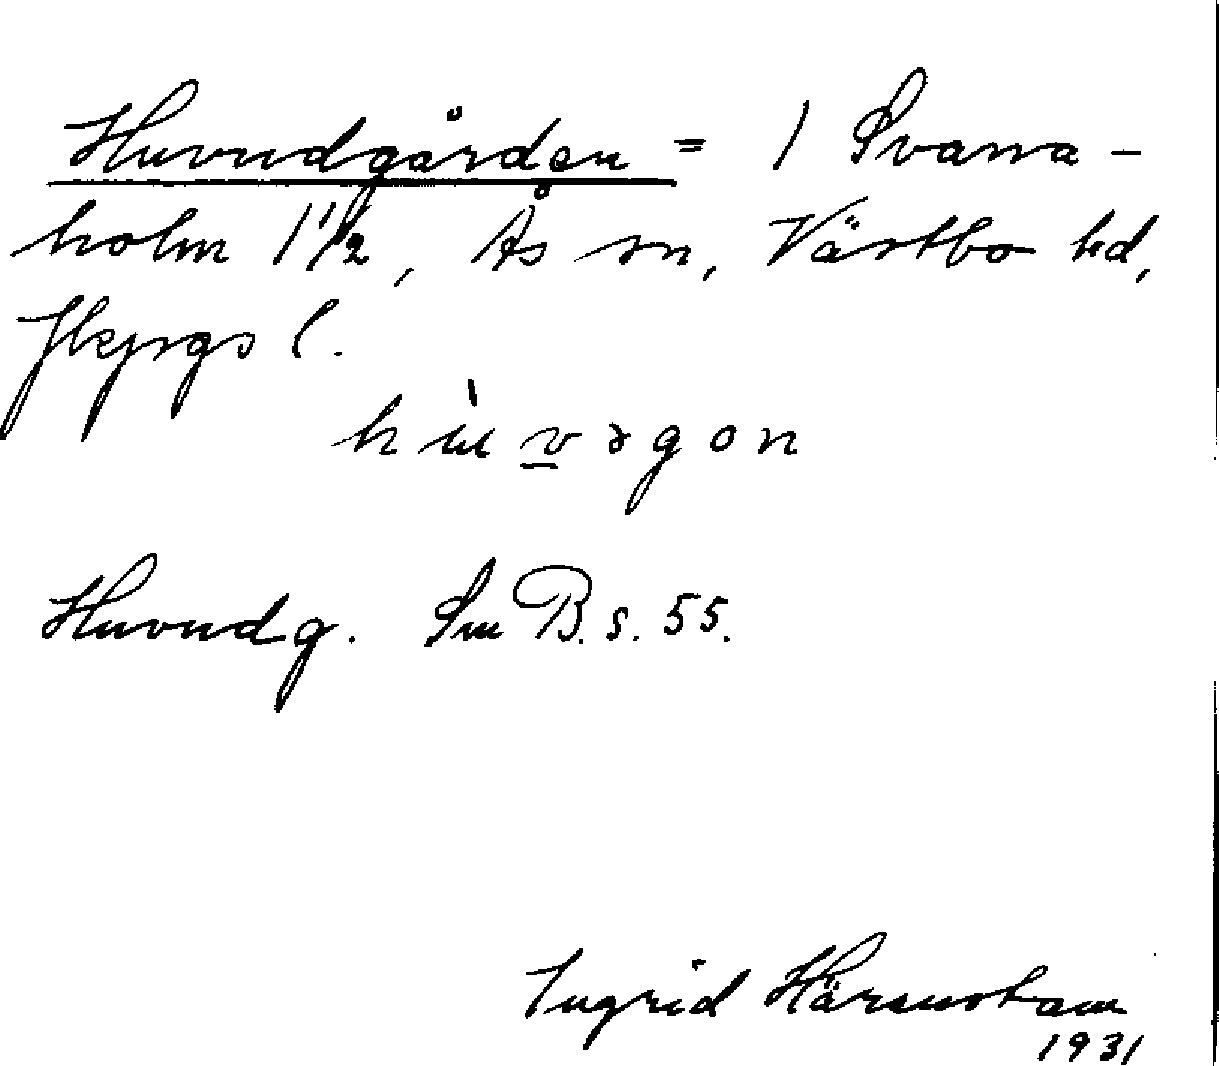 Huvudgården = 1 Svana-
holm 1 1/2, Ås sn, Västbo hd,
Jkpgs l.
Huvudg. Sm B. s. 55.
Ingrid Härenstam
1931